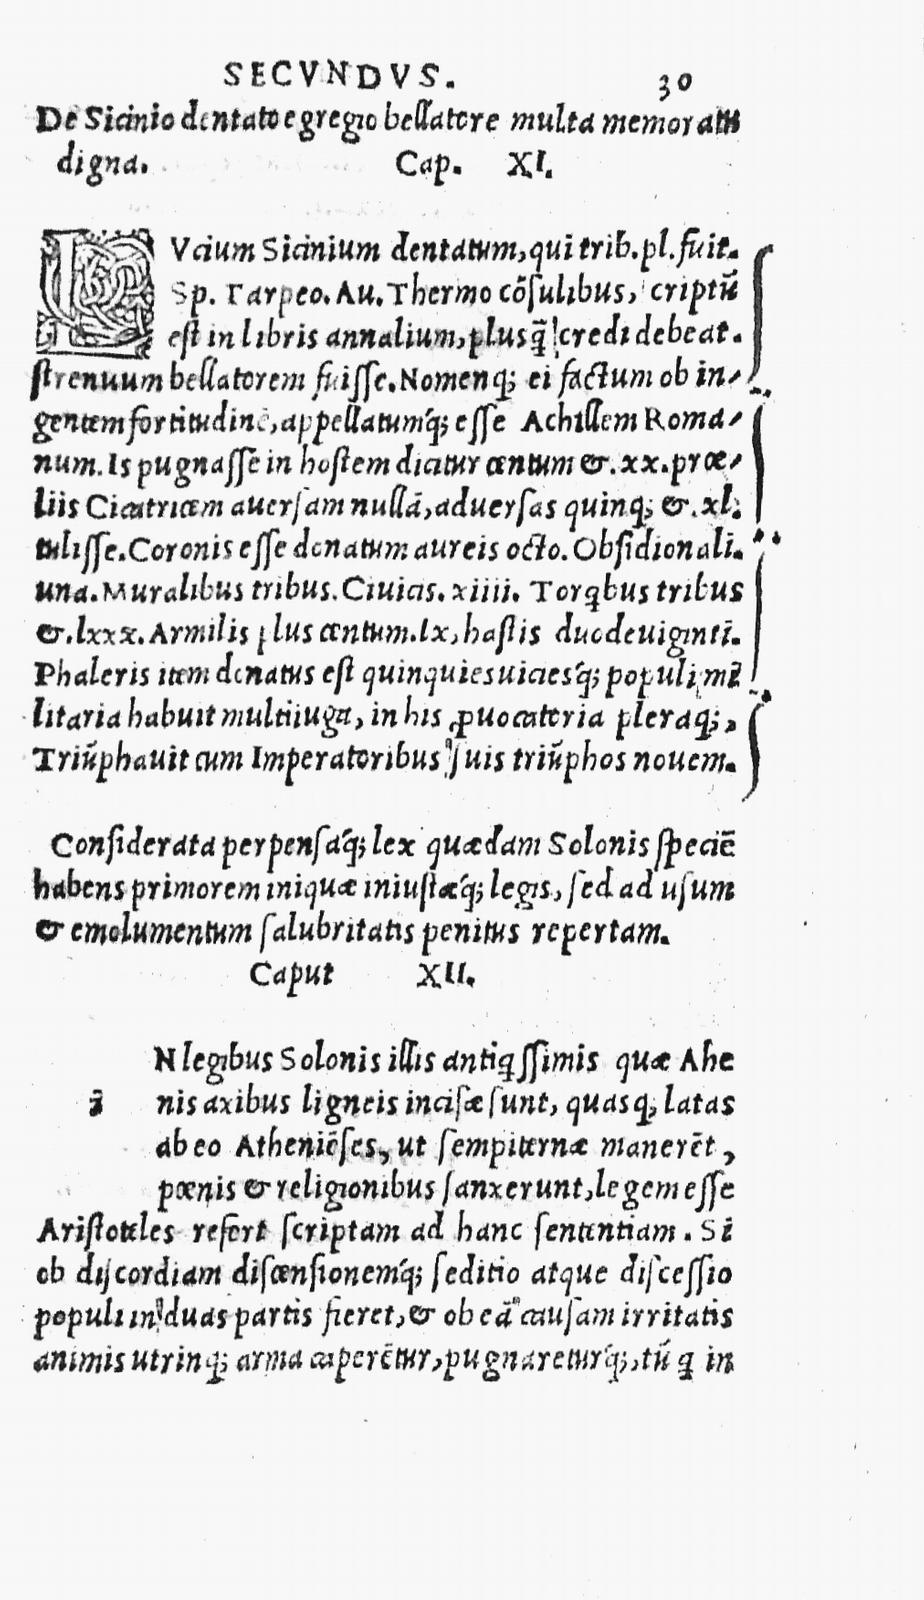 SECVNDVS. 30
De Sicinio dentato egregio bellatore multa memoratu
digna. Cap. XI.
LVcium Sicinium dentatum, qui trib. pl. fuit.
Sp. Tarpeo. Au. Thermo cōſulibus, ſcriptū
eſt in libris annalium, plusq̄ credi debeat.
ſtrenuum bellatorem fuiſſe. Nomenq; ei factum ob in-
gentem fortitudinē, appellatumq́; eſſe Achillem Roma-
num. Is pugnaſſe in hoſtem dicitur centum &. xx. prœ-
liis Cicatricem auerſam nullā, aduerſas quinq; &. xl.
tuliſſe. Coronis eſſe donatum aureis octo. Obſidionali.
una. Muralibus tribus. Ciuicis. xiiii. Torqbus tribus
&. lxxx. Armilis plus centum. lx, haſtis duodeuiginti.
Phaleris item donatus eſt quinquies uiciesq́; populi mi
litaria habuit multiiuga, in his ꝓuocatoria pleraq;,
Triūphauit cum Imperatoribus ſuis triūphos nouem.
Conſiderata perpenſaq́; lex quædam Solonis ſpeciē
habens primorem iniquæ iniuſtæq́; legis, ſed ad uſum
& emolumentum ſalubritatis penitus repertam.
Caput XII.
N legibus Solonis illis antiqſſimis quæ Ahe
nis axibus ligneis inciſæ ſunt, quasq; latas
ab eo Atheniēſes, ut ſempiternæ manerēt,
pœnis & religionibus ſanxerunt, legem eſſe
Ariſtoteles refert ſcriptam ad hanc ſententiam. Si
ob diſcordiam diſcenſionemq́; ſeditio atque diſceſſio
populi in duas partis fieret, & ob eā cauſam irritatis
animis utrinq; arma caperētur, pugnareturq́;, tū q in